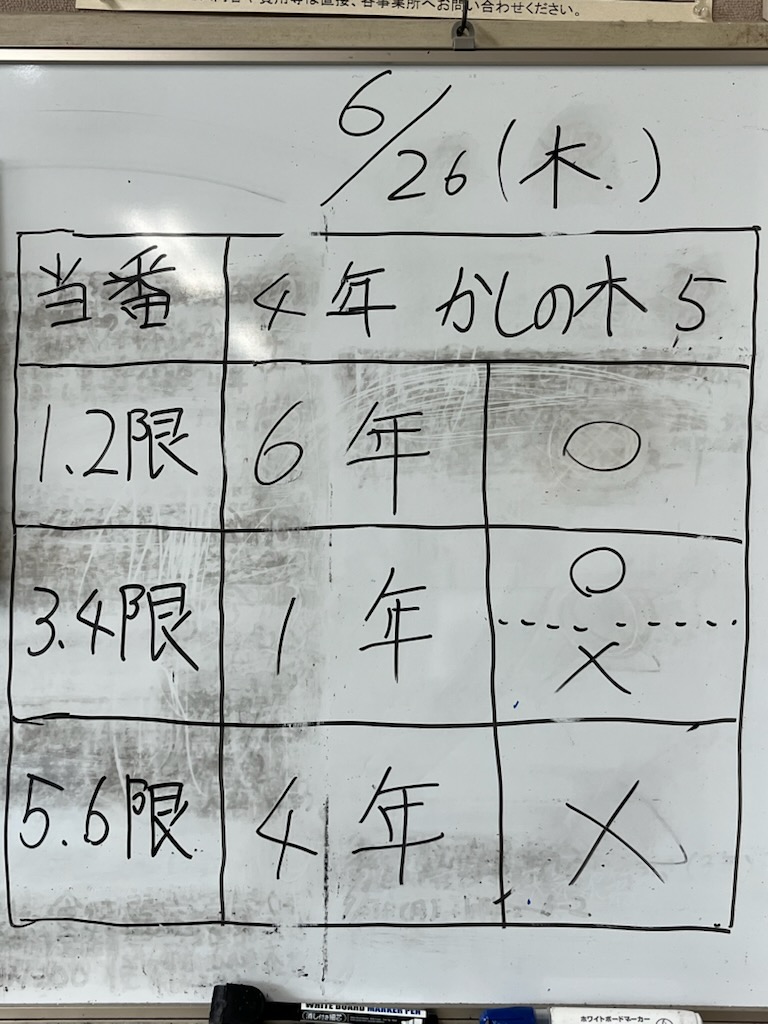 等は直接、各事業所へお問い合わせください。
6/26(木.)
当番 4年 かしの木 5
1.2限 6年 ○
3.4限 1年 ○
×
5.6限 4年 ×
WHITE BOARD MARKER PEN
ホワイトボードマーカー